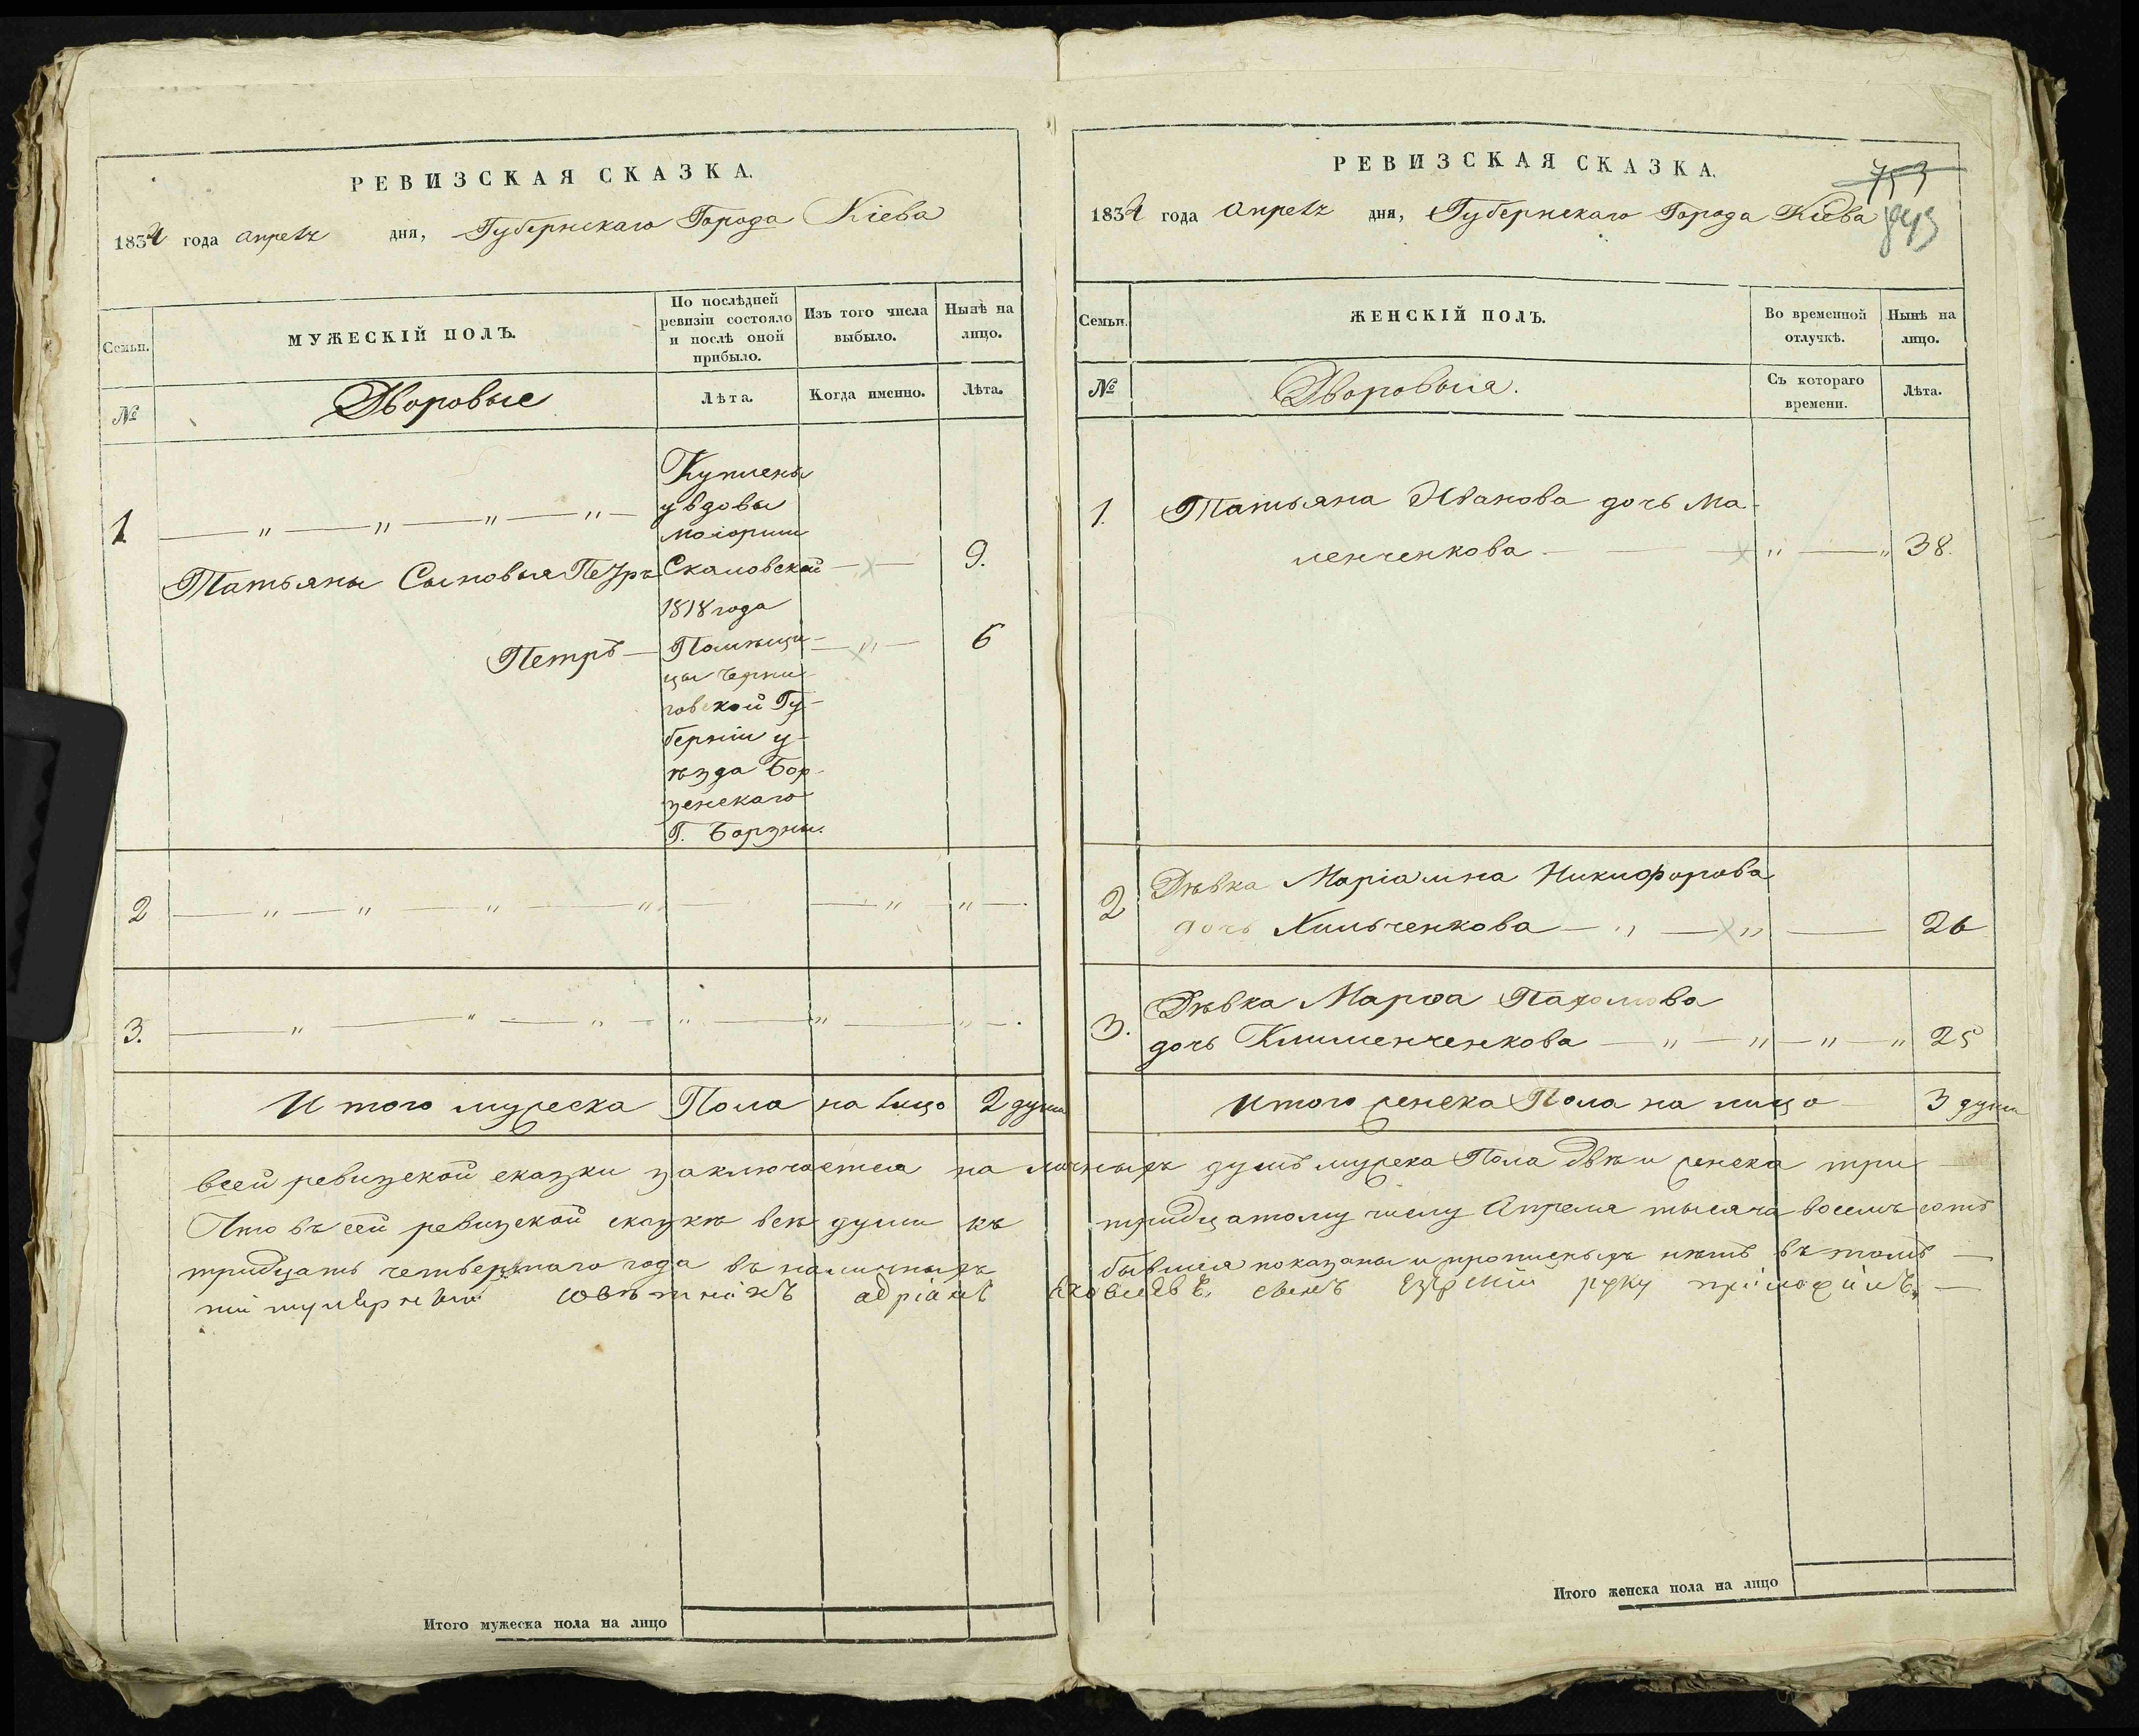 РЕВИЗСКАЯ СКАЗКА.
1834 года апреля дня, Губернскаго Города Кіева
Семьи.
МУЖЕСКІЙ ПОЛЪ.
По послѣдней ревизіи состояло и послѣ оной прибыло.
Изъ того числа выбыло.
Нынѣ на лицо.
№
Дворовые
Лѣта.
Когда именно.
Лѣта.
1
Куплены
у вдовы
маіорши
Татьяны Сыновья Петръ Скаловской 9.
1818 года
Петръ — Помѣщи- 6
цы Черни-
говской Гу-
берніи у-
ѣзда Бор-
зенскаго
Г. Борзны.
2
3.
Итого мужеска Пола на лицо 2 души
РЕВИЗСКАЯ СКАЗКА.
753
1834 года апреля дня, Губернскаго Города Кіева
Семьи.
ЖЕНСКІЙ ПОЛЪ.
Во временной отлучкѣ.
Нынѣ на лицо.
№
Дворовыя.
Съ котораго времени.
Лѣта.
1. Татьяна Иванова дочь Ма-
ленченкова 38.
2 Дѣвка Маріамна Никифорова
дочь Хильченкова 26
3. Дѣвка Марѳа Пахомова
дочь Клименченкова 25
Итого женска Пола на лицо 3 души
всей ревизской сказки заключается на личныхъ душъ мужеска Пола двѣ и женска три
Что въ сей ревизской сказкѣ всѣ души къ тридцатому числу Апреля тысяча восемь сотъ
тридцать четвертаго года въ наличныхъ бывшія показаны и прописныхъ нѣтъ въ томъ
титулярный совѣтникъ адріанъ Яковлевъ сынъ руку приложилъ.
Итого мужеска пола на лицо
Итого женска пола на лицо